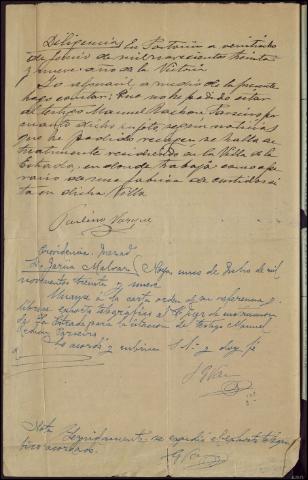 Diligencia En Portorin a veintiocho
de Junio de mil novecientos treinta
y nueve año de la Victoria
Yo refrendo, a medio de la presente
hago constar: Que no he podido citar
al testigo Manuel Rachon
cuanto dicho sujeto, segun noticias
que he podido recoger se halla ac-
tualmente residiendo en la Villa de la
Estrada, en donde trabaja como ope-
rario de una fabrica de curtidos si-
ta en dicha Villa
Paulino Vazquez
Providencia. Juzgado
Sr. Garcia Malvar uno de Julio de mil
novecientos treinta y nueve
Unase a la carta orden de su referencia y
librese exhorto telegráfico al
de La Estrada para la citacion del testigo Manuel

Lo acordó y rubrica S.Sª. y doy fé
Nota Seguidamente se expidió el exhorto telegra-
fico acordado.